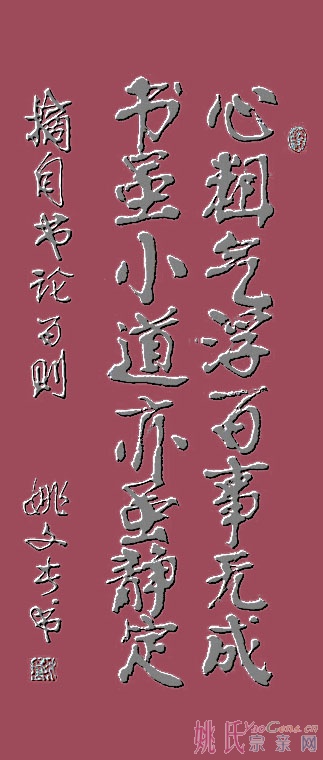 心粗气浮百事无成
书虽小道亦要静定
摘自书论百则
姚文书
姚氏宗亲网